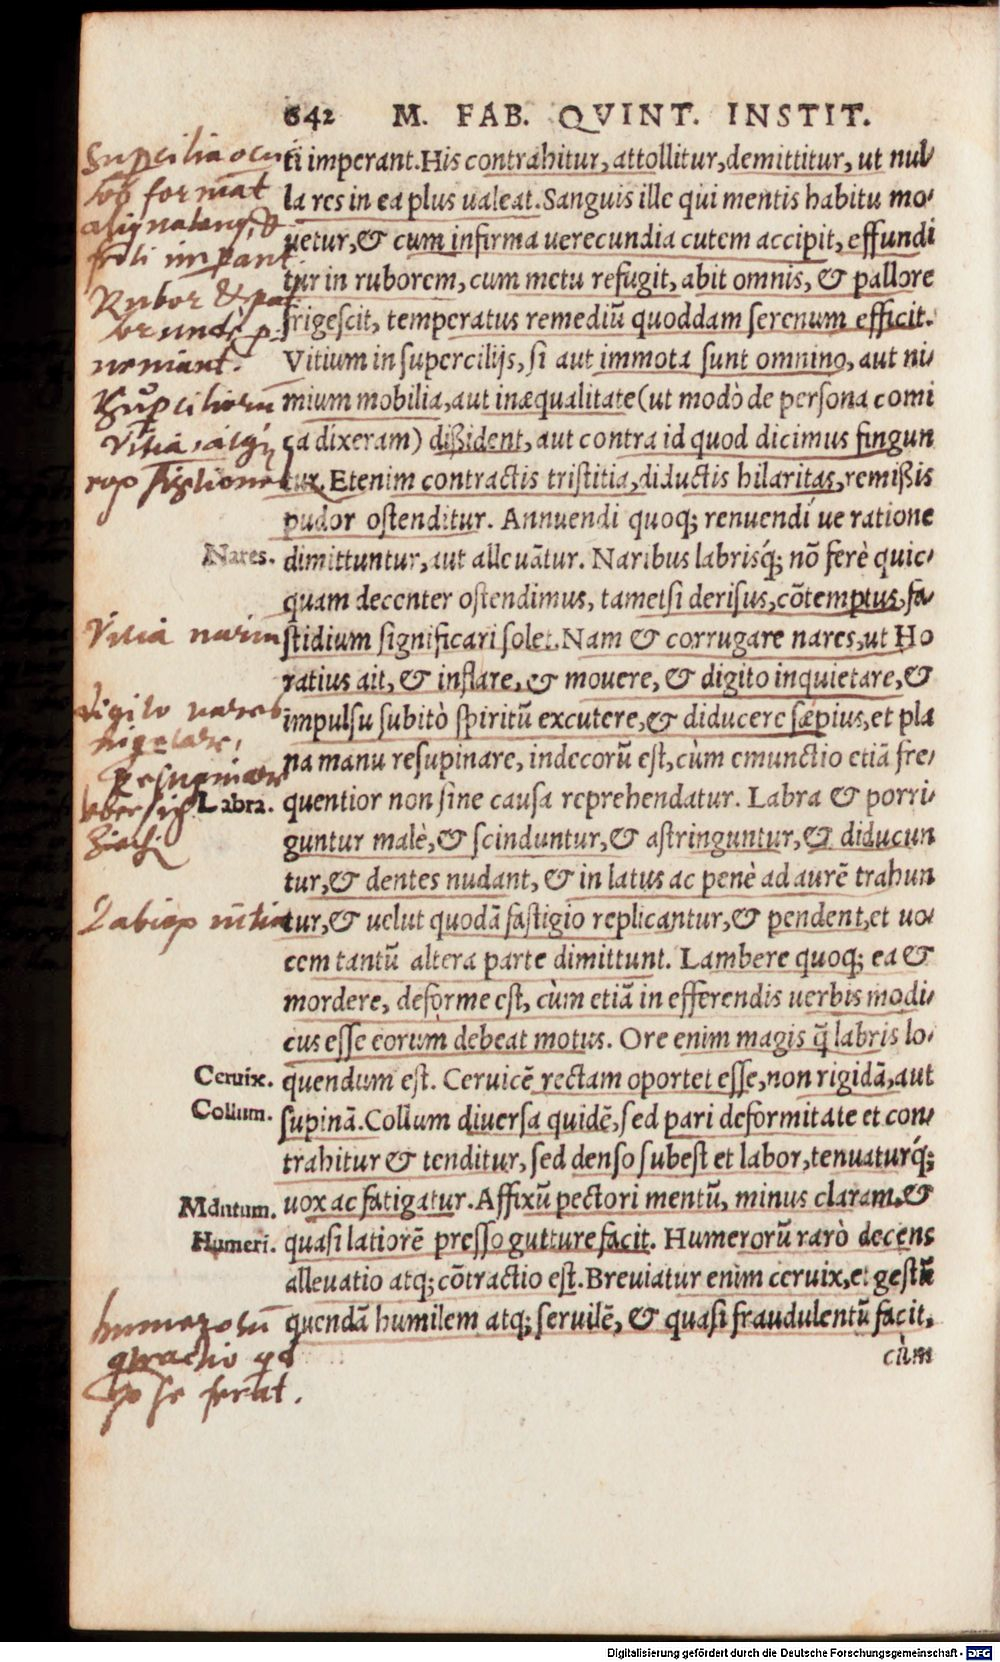 642 M. FAB. QVINT. INSTIT.
ti imperant. His contrahitur, attollitur, demittitur, ut nul-
la res in ea plus ualeat. Sanguis ille qui mentis habitu mo-
uetur, & cum infirma uerecundia cutem accipit, effundi
tur in ruborem, cum metu refugit, abit omnis, & pallore
frigescit, temperatus remediũ quoddam serenum efficit.
Vitium in supercilijs, si aut immota sunt omnino, aut ni-
mium mobilia, aut inæqualitate (ut modò de persona comi
ca dixeram) dißident, aut contra id quod dicimus fingun
tur. Etenim contractis tristitia, diductis hilaritas, remißis
pudor ostenditur. Annuendi quoq; renuendi ue ratione
Nares. dimittuntur, aut alleuãtur. Naribus labrisq́; nõ ferè quic-
quam decenter ostendimus, tametsi derisus, cõtemptus, fa-
Vitia stidium significari solet. Nam & corrugare nares, ut Ho
ratius ait, & inflare, & mouere, & digito inquietare, &
impulsu subitò spiritũ excutere, & diducere sæpius, et pla
na manu resupinare, indecorũ est, cùm emunctio etiã fre-
Labra. quentior non sine causa reprehendatur. Labra & porri-
guntur malè, & scinduntur, & astringuntur, & diducun
tur, & dentes nudant, & in latus ac penè ad aurẽ trahun
tur, & uelut quodã fastigio replicantur, & pendent, et uo-
cem tantũ altera parte dimittunt. Lambere quoq; ea &
mordere, deforme est, cùm etiã in efferendis uerbis modi-
cus esse eorum debeat motus. Ore enim magis q̃ labris lo-
Ceruix. quendum est. Ceruicẽ rectam oportet esse, non rigidã, aut
Collum. supinã. Collum diuersa quidẽ, sed pari deformitate et con-
trahitur & tenditur, sed denso subest et labor, tenuaturq́;
Mentum. uox ac fatigatur. Affixũ pectori mentũ, minus claram, &
Humeri. quasi latiorẽ presso gutture facit. Humerorũ rarò decens
alleuatio atq; cõtractio est. Breuiatur enim ceruix, et gestũ
quendã humilem atq; seruilẽ, & quasi fraudulentũ facit,
cùm
Digitalisierung gefördert durch die Deutsche Forschungsgemeinschaft - DFG